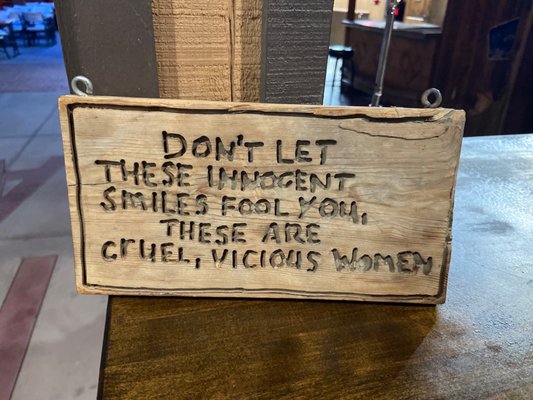 DON'T LET
THESE INNOCENT
SMILES FOOL YOU,
THESE ARE
CRUEL, VICIOUS WOMEN